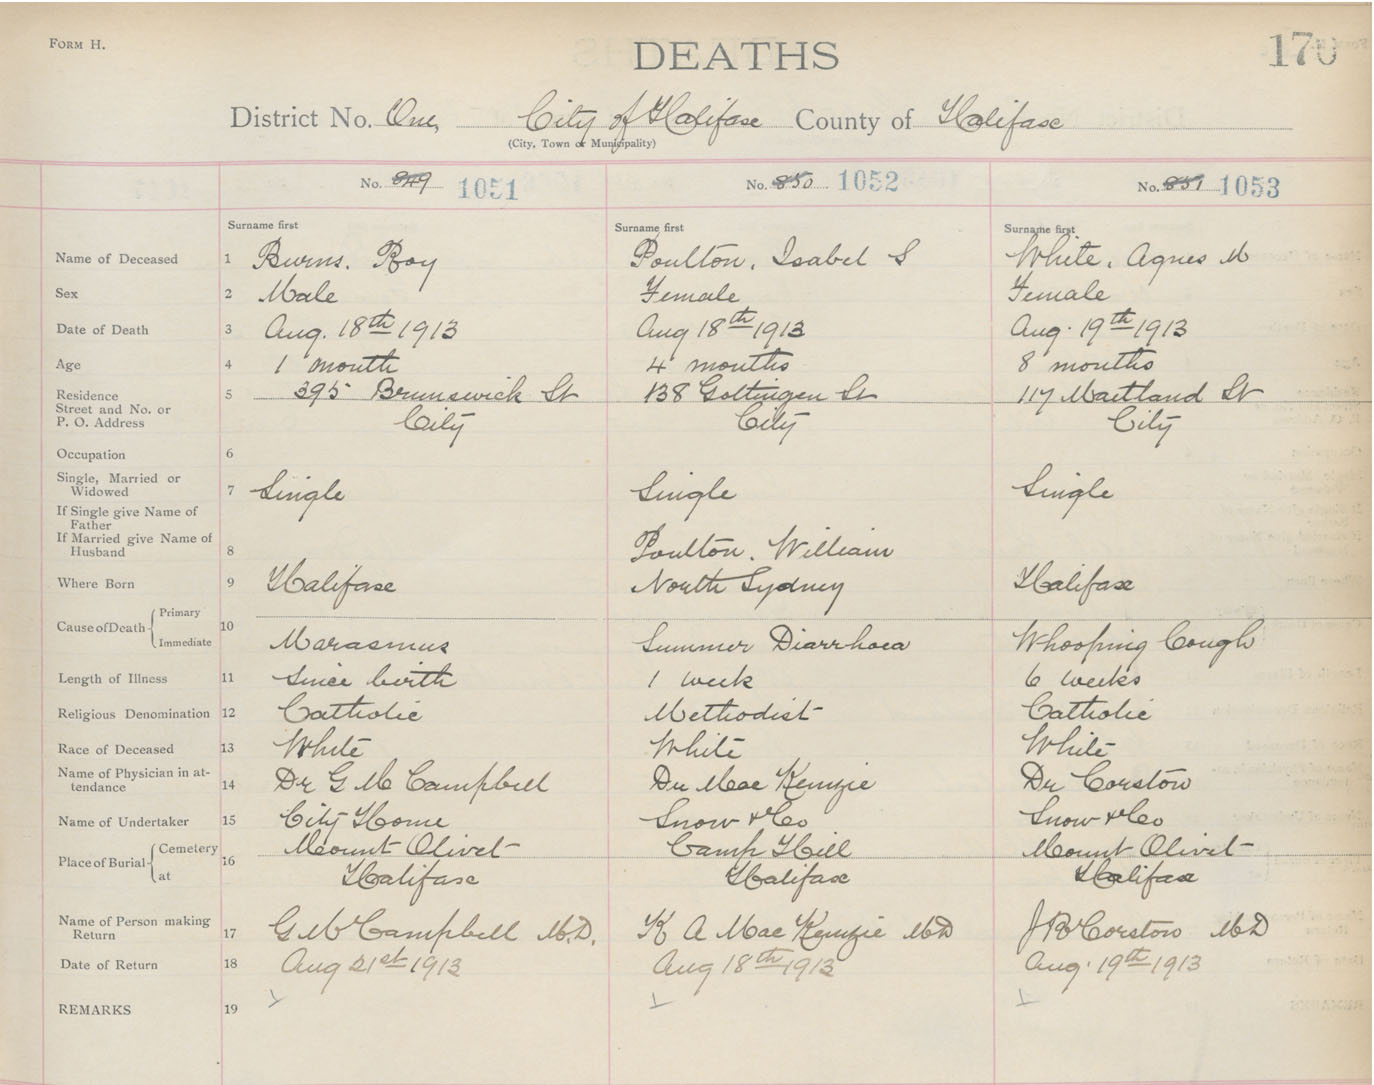 FORM H.
DEATHS
170
District No. One, City of Halifax County of Halifax
(City, Town or Municipality)
No. 849 1051 No. 850 1052 No. 851 1053
Surname first Surname first Surname first
Name of Deceased 1 Burns. Roy Poulton, Isabel S White, Agnes M
Sex 2 Male Female Female
Date of Death 3 Aug. 18th 1913 Aug 18th 1913 Aug. 19th 1913
Age 4 1 month 4 months 8 months
Residence 5 395 Brunswick St 138 Gottingen St 117 Maitland St
Street and No. or
P. O. Address City City City
Occupation 6
Single, Married or
Widowed 7 Single Single Single
If Single give Name of
Father
If Married give Name of
Husband 8 Poulton, William
Where Born 9 Halifax North Sydney Halifax
Cause of Death Primary 10
Immediate Marasmus Summer Diarrhoea Whooping Cough
Length of Illness 11 Since birth 1 week 6 weeks
Religious Denomination 12 Catholic Methodist Catholic
Race of Deceased 13 White White White
Name of Physician in at-
tendance 14 Dr G M Campbell Dr MacKenzie Dr Corston
Name of Undertaker 15 City Home Snow & Co Snow & Co
Place of Burial Cemetery 16 Mount Olivet Camp Hill Mount Olivet
at Halifax Halifax Halifax
Name of Person making
Return 17 G M Campbell M.D. K A MacKenzie MD J R Corston MD
Date of Return 18 Aug 21st 1913 Aug 18th 1913 Aug. 19th 1913
REMARKS 19